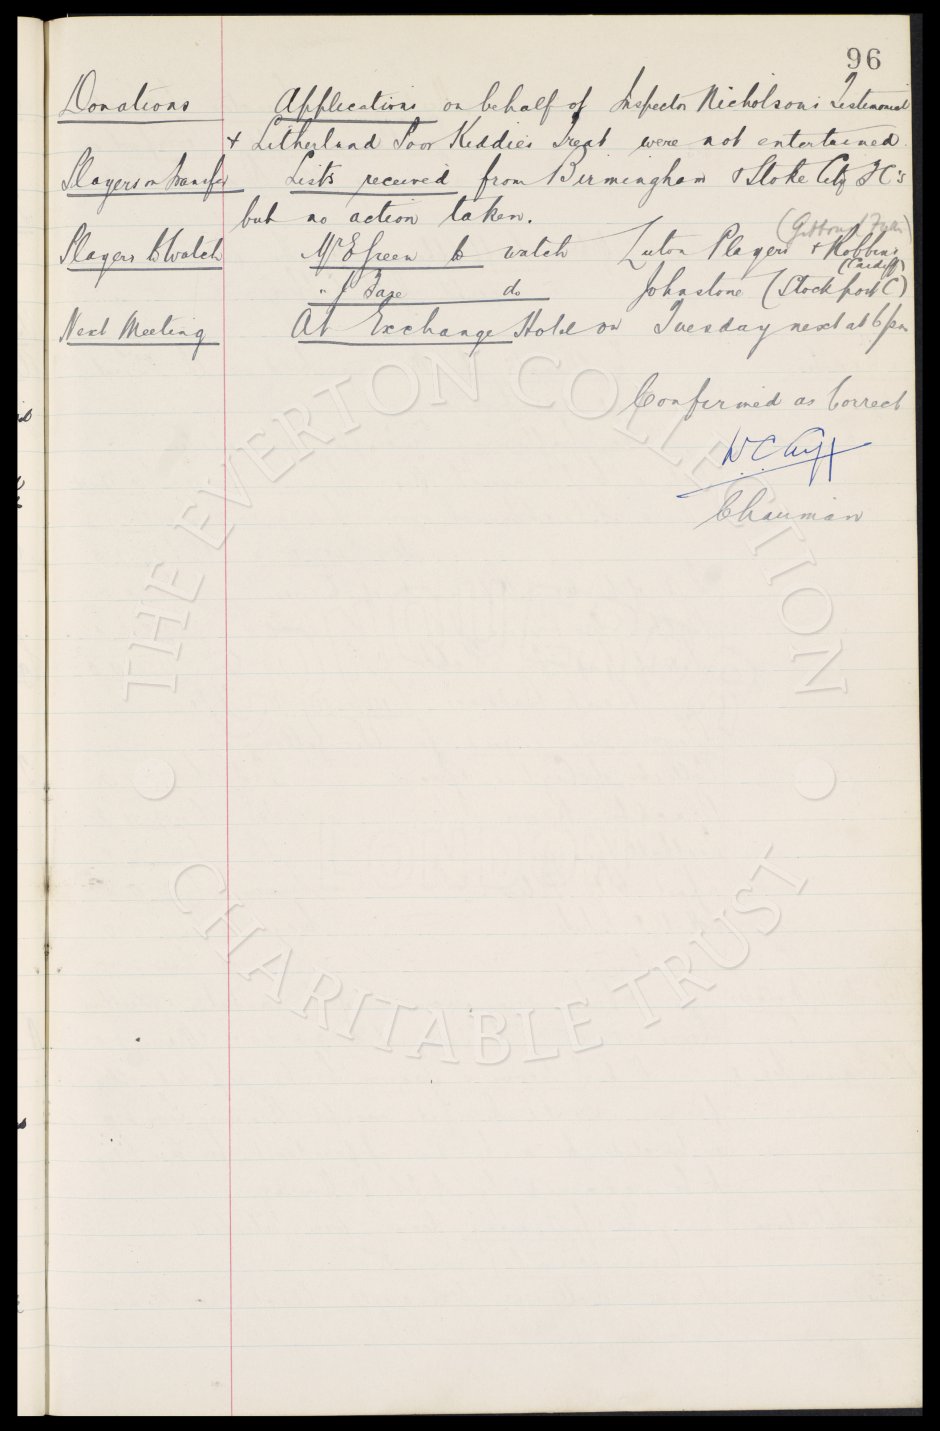 96
Donations Applications on behalf of Inspector Nicholson's Testimonial
+ Litherland Poor Kiddies Treat were not entertained.
Players on Transfer Lists received from Birmingham & Stoke City FC's
but no action taken.
(
Players to Watch Mr E Green to watch Luton Players & Robbins
(Cardiff)
" J do Johnstone (Stockport C)
Next Meeting At Exchange Hotel on Tuesday next at 6 pm
Confirmed as Correct
W C Cuff
Chairman
THE EVERTON COLLECTION
CHARITABLE TRUST